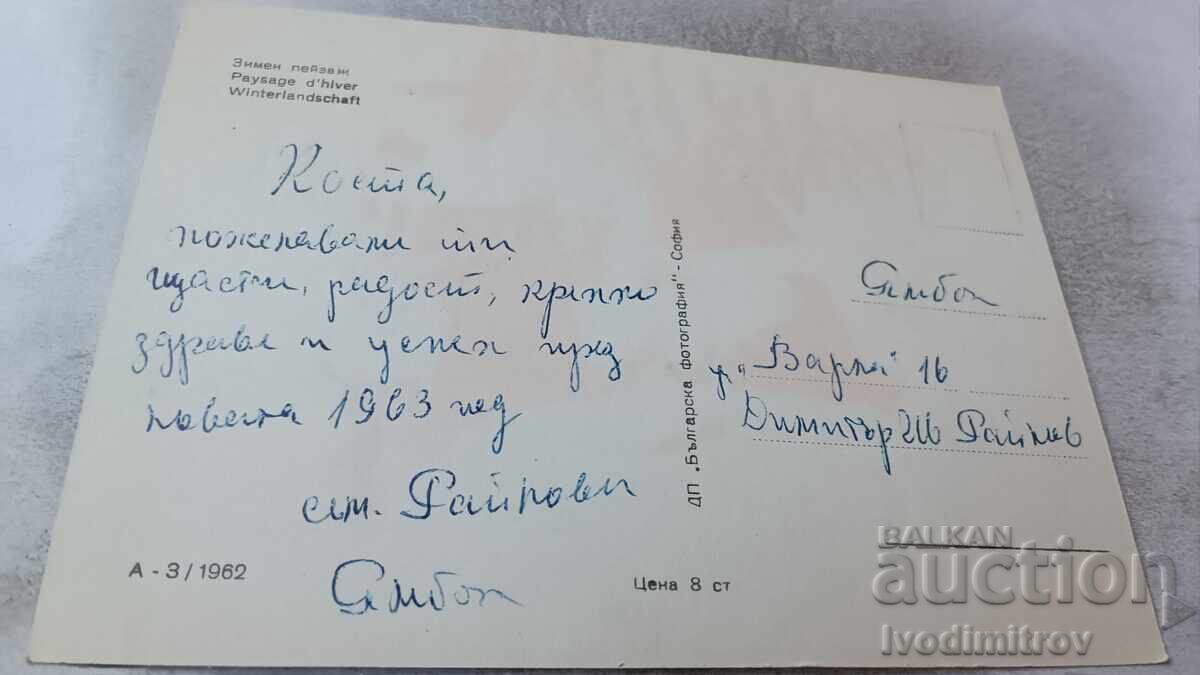 Зимен пейзаж
Paysage d'hiver
Winterlandschaft
Коста,
пожелавам ти
щасти, радост, крепко
здраве и успех през
новата 1963 год
сем. Райнови
Ямбол
А - 3 / 1962
Цена 8 ст
ДП „Българска фотография" - София
Ямбол
ул „Варна" 16
Димитър Райнов
BALKAN
auction
Ivodimitrov